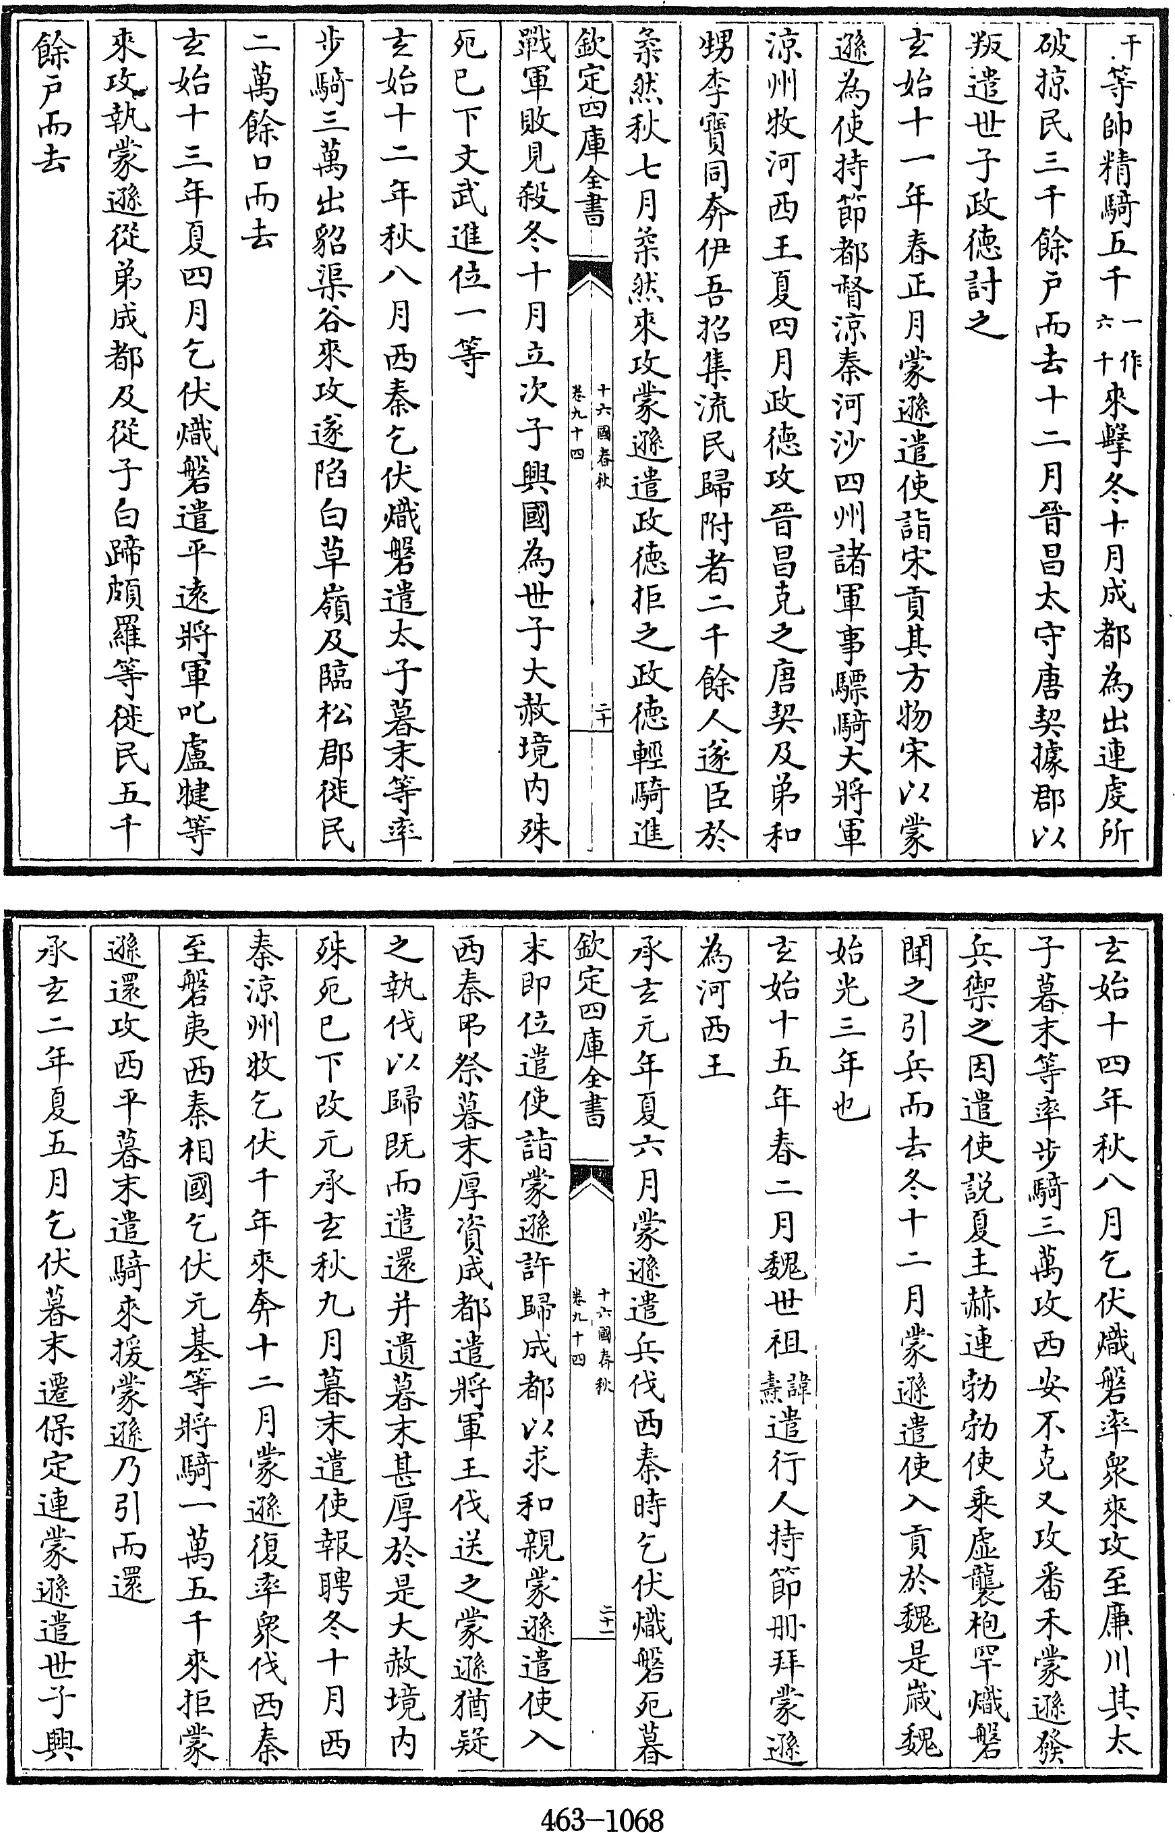 于等帥精騎五千一作六千來擊冬十月成都為出連虔所
破掠民三千餘戶而去十二月晉昌太守唐契據郡以
叛遣世子政德討之
玄始十一年春正月蒙遜遣使詣宋貢其方物宋以蒙
遜為使持節都督涼秦河沙四州諸軍事驃騎大將軍
涼州牧河西王夏四月政德攻晉昌克之唐契及弟和
甥李寶同奔伊吾招集流民歸附者二千餘人遂臣於
柔然秋七月柔然來攻蒙遜遣政德拒之政德輕騎進
欽定四庫全書
十六國春秋
卷九十四
二十
戰軍敗見殺冬十月立次子興國為世子大赦境內殊
死已下文武進位一等
玄始十二年秋八月西秦乞伏熾磐遣太子暮末等率
步騎三萬出貂渠谷來攻遂陷白草嶺及臨松郡徙民
二萬餘口而去
玄始十三年夏四月乞伏熾磐遣平遠將軍叱盧犍等
來攻執蒙遜從弟成都及從子白蹄頗羅等徙民五千
餘戶而去
玄始十四年秋八月乞伏熾磐率衆來攻至廉川其太
子暮末等率步騎三萬攻西安不克又攻番禾蒙遜發
兵禦之因遣使說夏主赫連勃勃使乘虛襲枹罕熾磐
聞之引兵而去冬十二月蒙遜遣使入貢於魏是歲魏
始光三年也
玄始十五年春二月魏世祖諱燾遣行人持節冊拜蒙遜
為河西王
承玄元年夏六月蒙遜遣兵伐西秦時乞伏熾磐死暮
欽定四庫全書
十六國春秋
卷九十四
二十一
末即位遣使詣蒙遜許歸成都以求和親蒙遜遣使入
西秦弔祭暮末厚資成都遣將軍王伐送之蒙遜猶疑
之執伐以歸既而遣還并遺暮末甚厚於是大赦境內
殊死已下改元承玄秋九月暮末遣使報聘冬十月西
秦涼州牧乞伏千年來奔十二月蒙遜復率衆伐西秦
至磐夷西秦相國乞伏元基等將騎一萬五千來拒蒙
遜還攻西平暮末遣騎來援蒙遜乃引而還
承玄二年夏五月乞伏暮末遷保定連蒙遜遣世子興
463-1068